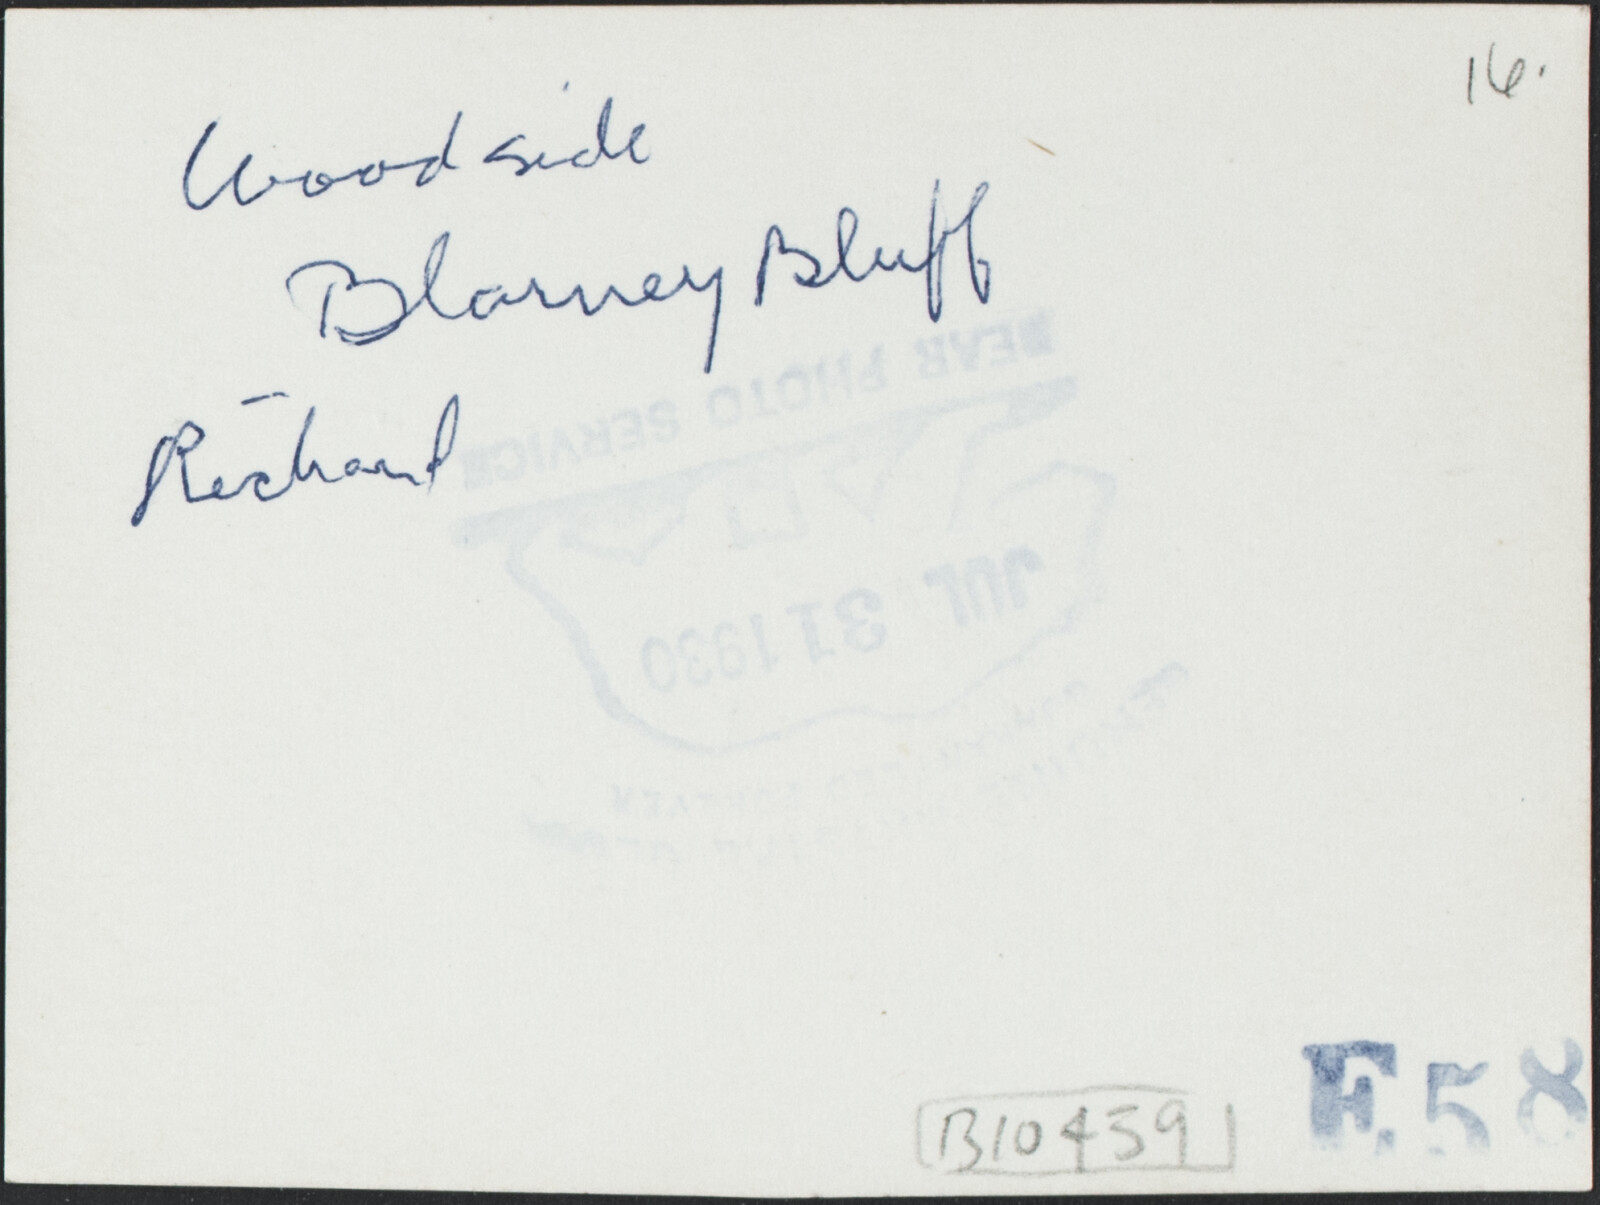 16.
Woodside
Blarney Bluff
Richard
BEAR PHOTO SERVICE
JUL 31 1930
B10459
F.58